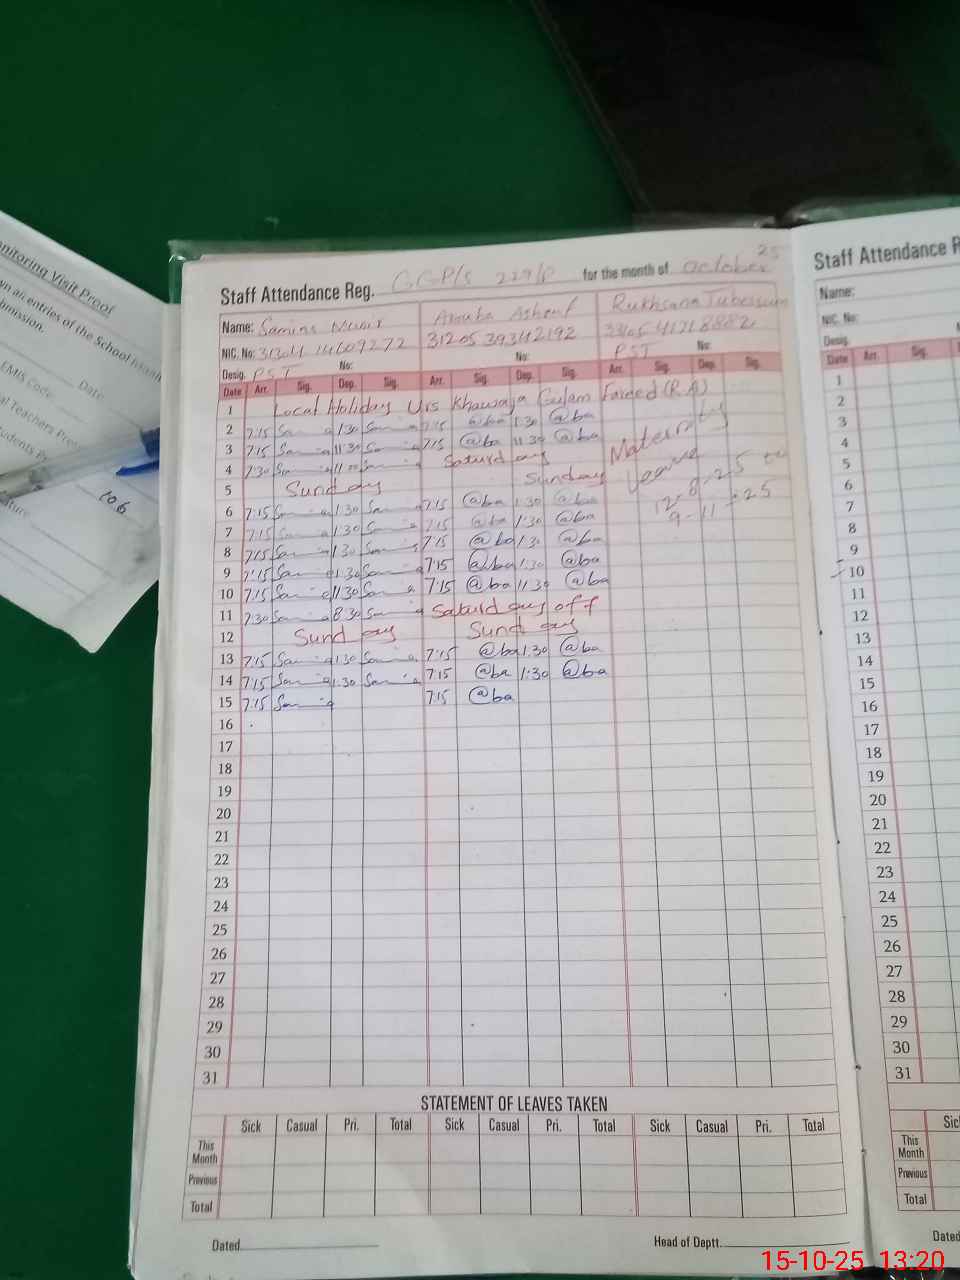 onitoring Visit Proof
an entries of the School
bmission.
EMIS Code
Date
al Teachers Pres
udents P
nature
106
Staff Attendance Reg. G.G.P/S 229/P for the month of October 25
Name: Samina Munir
Rukhsana Tubessum
NIC. No:
31205 39342192
Desig. PST No: No: PST No:
Date Arr. Sig. Dep. Sig. Arr. Sig. Dep. Sig. Arr. Sig. Dep. Sig.
1 Local Holiday Urs Khawaja Gulam Fareed (R.A)
2 7:15 1:30 7:15 @ba 1:30 @ba
3 7:15 11:30 7:15 @ba 11:30 @ba Maternity
4 7:30 11:00 Saturday Leave
5 Sunday Sunday 12-8-25 to
6 7:15 1:30 7:15 @ba 1:30 @ba 9-11-25
7 7:15 1:30 7:15 @ba 1:30 @ba
8 7:15 1:30 7:15 @ba 1:30 @ba
9 7:15 1:30 7:15 @ba 1:30 @ba
10 7:15 11:30 7:15 @ba 11:30 @ba
11 7:30 8:30 Saturday off
12 Sunday Sunday
13 7:15 1:30 7:15 @ba 1:30 @ba
14 7:15 1:30 7:15 @ba 1:30 @ba
15 7:15 7:15 @ba
16
17
18
19
20
21
22
23
24
25
26
27
28
29
30
31
STATEMENT OF LEAVES TAKEN
Sick Casual Pri. Total Sick Casual Pri. Total Sick Casual Pri. Total
This Month
Previous
Total
Dated
Head of Deptt.
Staff Attendance R
Name:
NIC. No:
Desig.
Date Arr. Sig.
1
2
3
4
5
6
7
8
9
10
11
12
13
14
15
16
17
18
19
20
21
22
23
24
25
26
27
28
29
30
31
Sick
This Month
Previous
Total
Dated
15-10-25 13:20